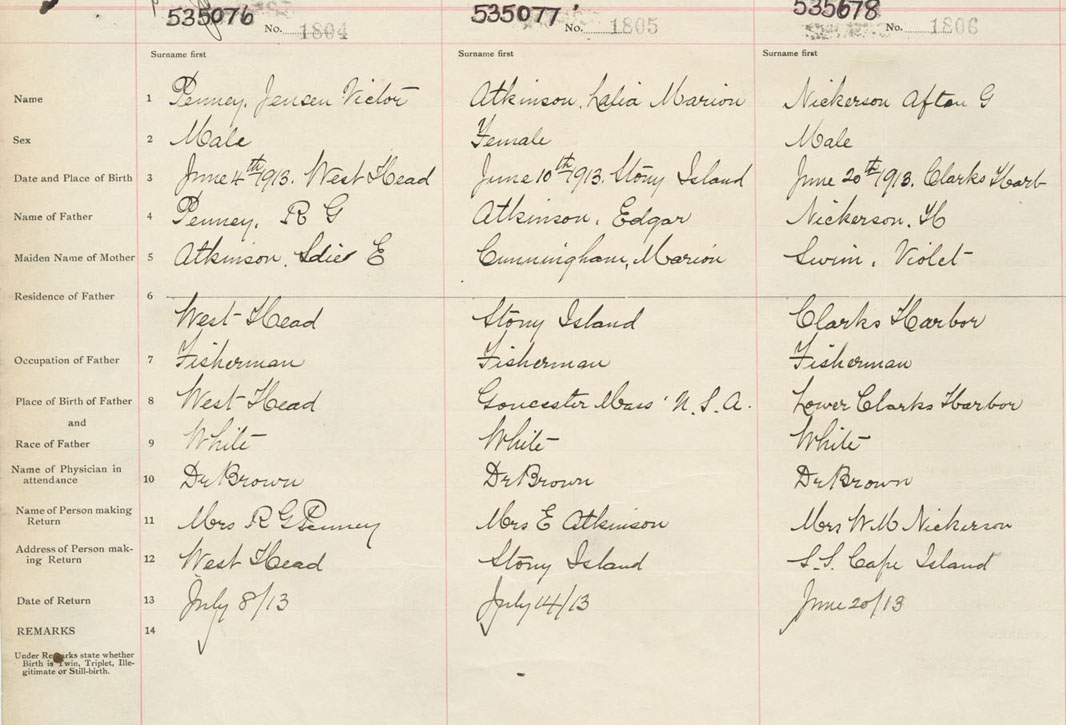 535076 535077 535678
No. 1804 No. 1805 No. 1806
Surname first Surname first Surname first
Name 1 Penney, Jensen Victor Atkinson, Lalia Marion Nickerson Afton G
Sex 2 Male Female Male
Date and Place of Birth 3 June 4th 1913. West Head June 10th 1913. Stony Island June 20th 1913. Clarks Harb
Name of Father 4 Penney, R G Atkinson, Edgar Nickerson, H
Maiden Name of Mother 5 Atkinson, E Cunningham, Marion Swim, Violet
Residence of Father 6
West Head Stony Island Clarks Harbor
Occupation of Father 7 Fisherman Fisherman Fisherman
Place of Birth of Father 8 West Head Goncester Mass' U.S.A. Lower Clarks Harbor
and
Race of Father 9 White White White
Name of Physician in
attendance 10 Dr Brown Dr Brown Dr Brown
Name of Person making
Return 11 Mrs R G Penney Mrs E Atkinson Mrs W M Nickerson
Address of Person mak-
ing Return 12 West Head Stony Island S.S. Cape Island
Date of Return 13 July 8/13 July 14/13 June 20/13
REMARKS 14
Under Remarks state whether
Birth is Twin, Triplet, Ille-
gitimate or Still-birth.